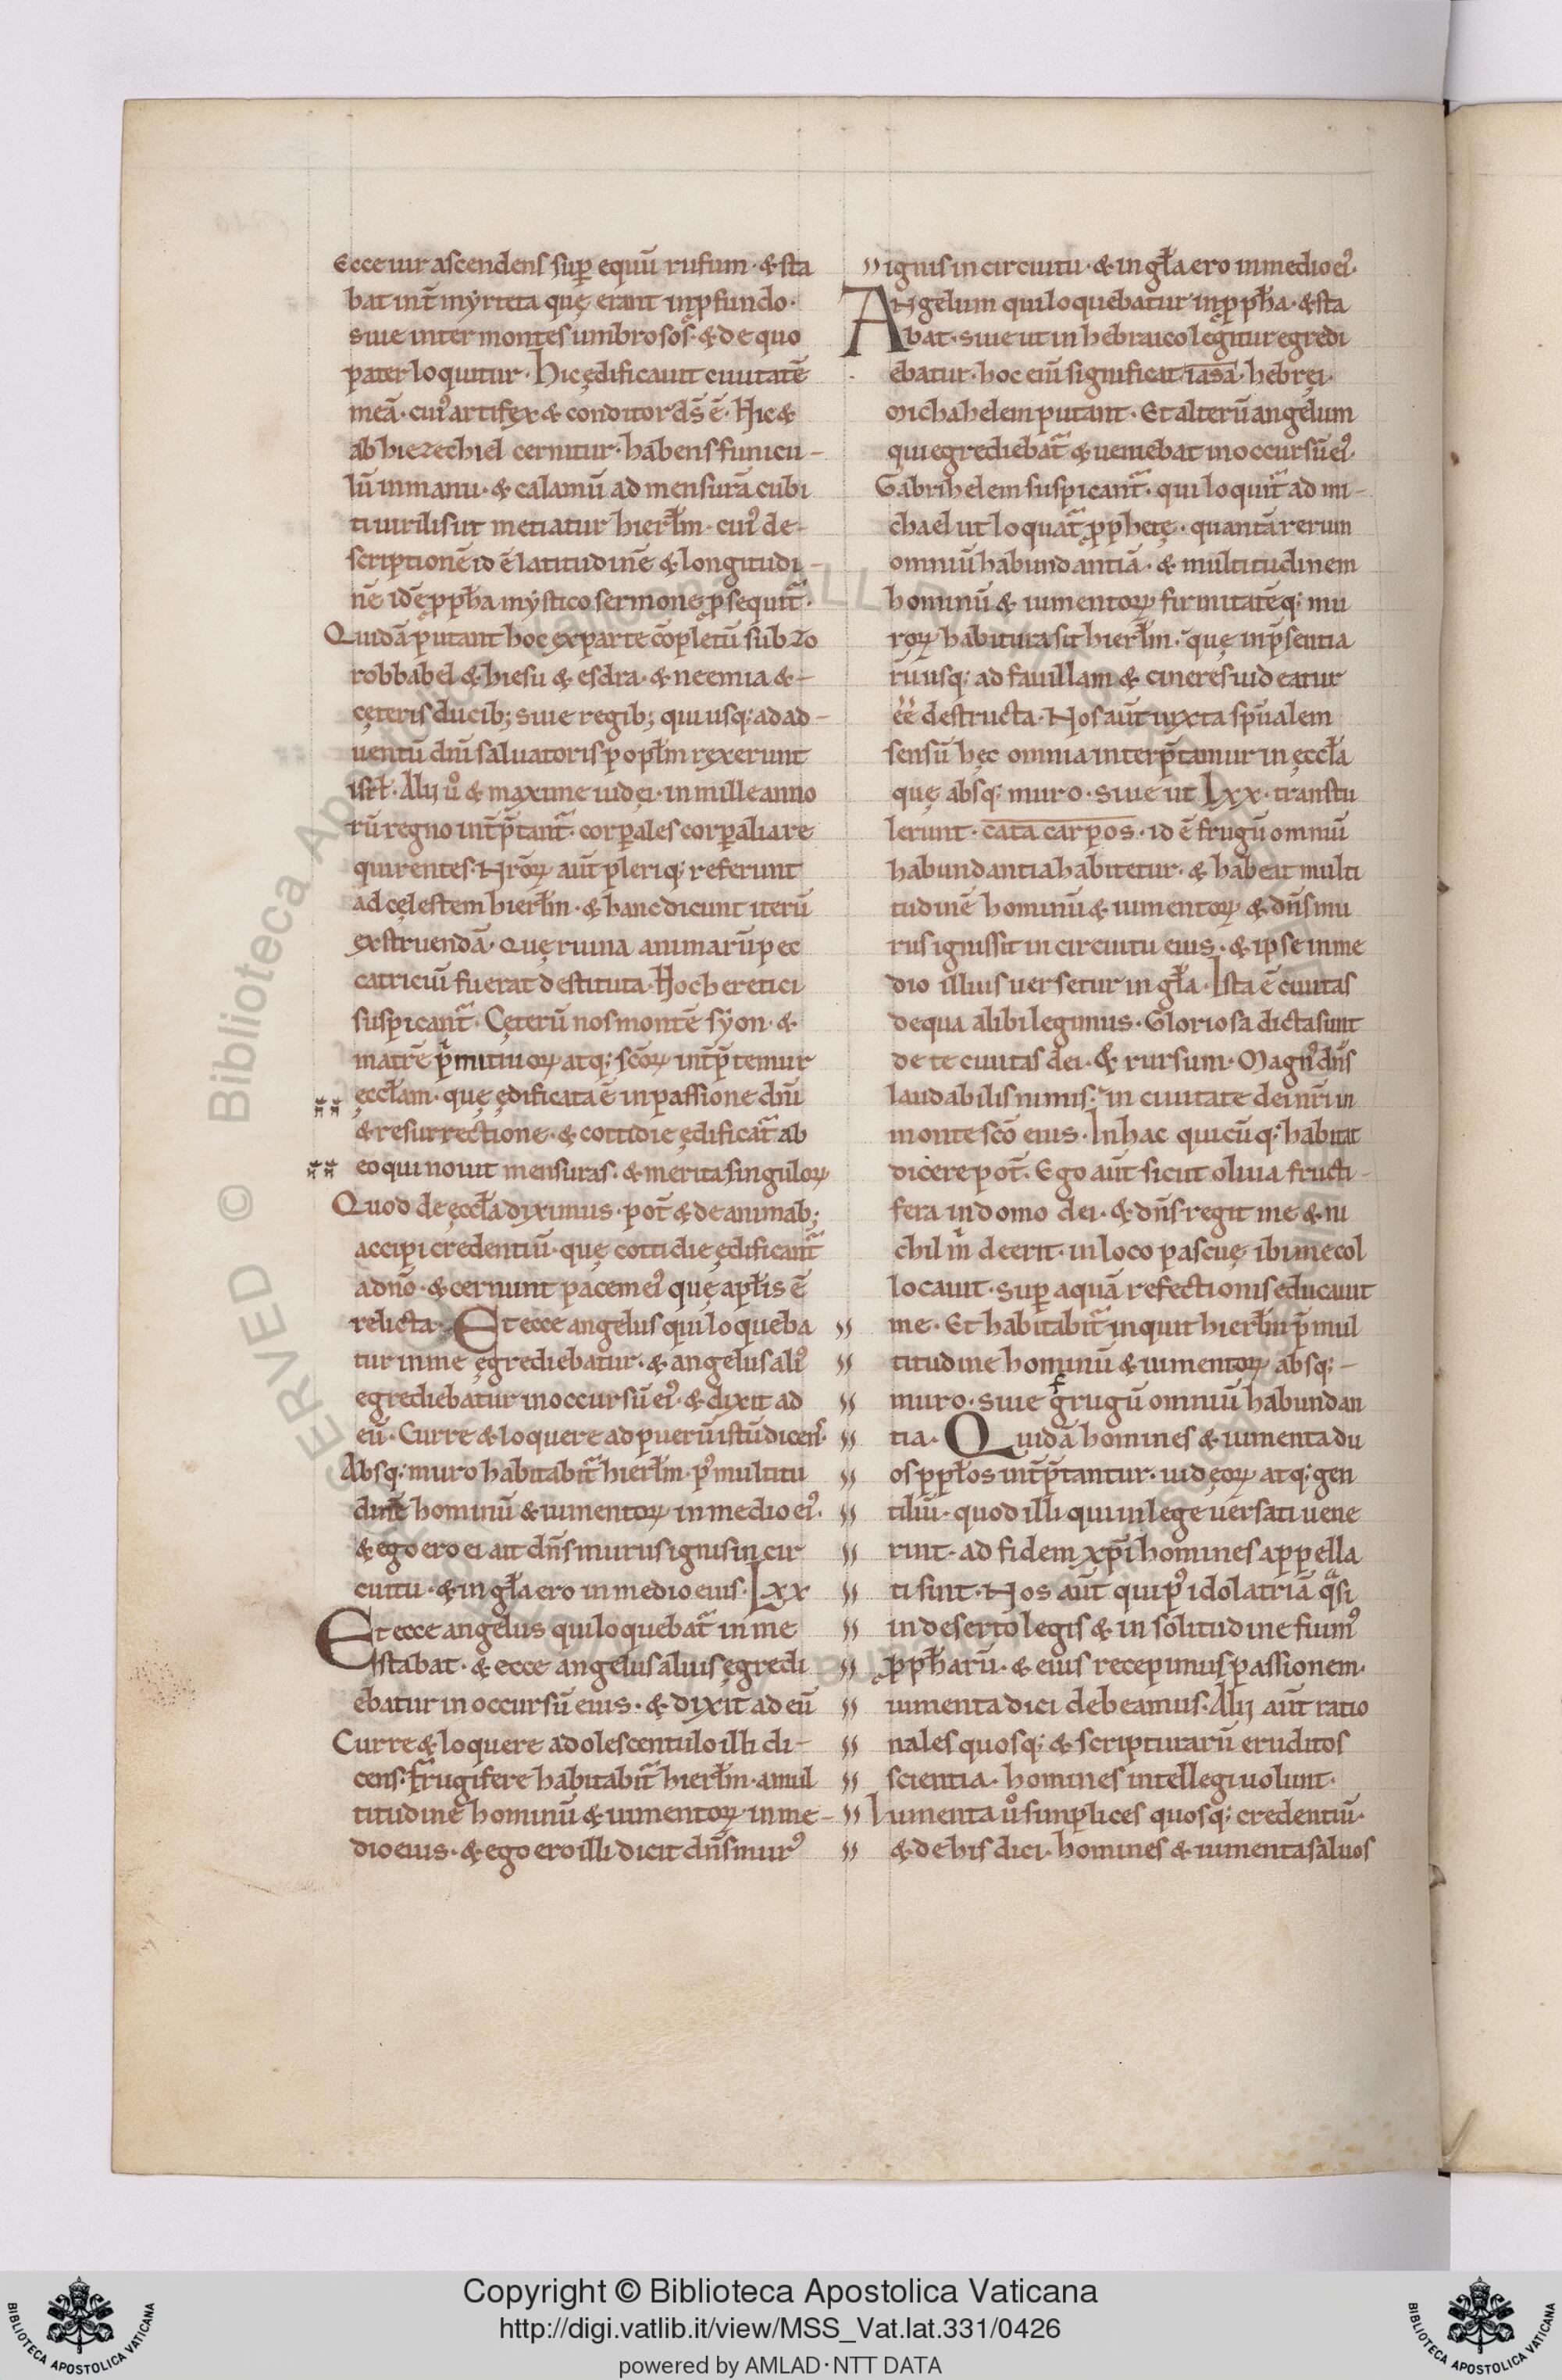 Ecce uir ascendens sup̄ equū rufum · & sta
bat int̄ myrteta quę erant in p̱fundo ·
siue inter montes umbrosos · & de quo
pater loquitur · Hic ędificauit ciuitatē
meā · cuiꝰ artifex & conditor ds̄ ē · Hic &
ab hiezechiel cernitur · habens funicu-
lū in manu · & calamū ad mensurā cubi
ti uirilis ut metiatur hierl̄m · cuiꝰ de-
scriptionē id ē latitudinē & longitudi-
nē idē ꝓph̄a mystico sermone ꝓsequit᷑ ·
Quidā putant hoc ex parte cōpletū sub zo
robbabel & hiesu & esdra · & neemia & -
cęteris ducib; siue regib; qui usq; ad ad-
uentū dn̄i saluatoris popl̄m rexerunt
isrl̄ · Alij ů & maxime iudęi · in mille anno
rū regno int̄p̄tant᷑ · corꝑales corꝑalia re
quirentes · Nr̄oꝝ aūt pleriq; referunt
ad cęlestem hierl̄m · & hanc dicunt iterū
exstruendā · Quę ruina animarū pec
catriciū fuerat destituta · Hoc heretici
suspicant᷑ · Cęterū nos montē syon · &
matrē p̄mitiuoꝝ atq; sc̄oꝝ int̄p̄temur
ęccl̄am · quę ędificata ē in passione dn̄i
& resurrectione · & cottidie ędificat᷑ ab
eo qui nouit mensuras · & merita singuloꝝ
Quod de ęccl̄a diximus · pot̄ & de animab;
accipi credentiū · quę cottidie ędificant᷑
a dn̄o · & cernunt pacem eiꝰ quę apl̄is ē
relicta · Et ecce angelus qui loqueba
tur in me ęgrediebatur · & angelus aliꝰ
egrediebatur in occursū eiꝰ · & dixit ad
eū · Curre & loquere ad puerū istū dicens ·
Absq; muro habitabit᷑ hierl̄m · p̄ multitu
dinē hominū & iumentoꝝ in medio eiꝰ ·
& ego ero ei ait dn̄s murus ignis in cir
cuitu · & in gl̄a ero in medio eius · Lxx
Et ecce angelus qui loquebat᷑ in me
stabat · & ecce angelus alius ęgredi
ebatur in occursū eius · & dixit ad eū
Curre & loquere adolescentulo illi di-
cens · frugifere habitabit᷑ hierl̄m · a mul
titudinē hominū & iumentoꝝ in me-
dio eius · & ego ero illi dicit dn̄s murꝰ
ignis in circuitu · & in gl̄a ero in medio eiꝰ ·
Angelum qui loquebatur in ꝓph̄a · & sta
bat · siue ut in hebraico legitur egredi
ebatur · hoc eiū significat iasa · hebręi ·
Michahelem putant · Et alterū angelum
qui egrediebat᷑ & ueniebat in occursū eiꝰ ·
Gabrihelem suspicant᷑ · qui loquit᷑ ad mi-
chael ut loquat᷑ ꝓphetę · quantā rerum
omniū habundantiā · & multitudinem
hominū & iumentoꝝ firmitatēq; mu
roꝝ habitura sit hierl̄m · quę in p̄sentia
rū usq; ad fauillam & cineres uideatur
ēē destructa · Nos aūt iuxta sp̄ualem
sensū hęc omnia interp̄tamur in ęccl̄a
quę absq; muro · siue ut Lxx · transtu
lerunt · cata carpos · id ē frugū omniū
habundantia habitetur · & habeat multi
tudinē hominū & iumentoꝝ & dn̄s mu
rus ignis sit in circuitu eius · & ipse in me
dio illius uersetur in gl̄a · Ista ē ciuitas
de qua alibi legimus · Gloriosa dicta sunt
de te ciuitas dei · & rursum · Magnꝰ dn̄s
laudabilis nimis · in ciuitate dei nr̄i in
monte sc̄o eius · In hac quicūq; habitat
dicere pot̄ · Ego aūt sicut oliua fructi-
fera in domo dei · & dn̄s regit me & ni
chil m̄ deerit · in loco pascuę ibi me col
locauit · sup̄ aquā refectionis educauit
me · Et habitabit᷑ inquit hierl̄m p̄ mul
titudine hominū & iumentoꝝ absq; -
muro · siue frugū omniū habundan
tia · Quidā homines & iumenta du
os ppl̄os int̄p̄tantur · iudęoꝝ atq; gen
tiliū · quod illi qui in lege uersati uene
rint · ad fidem xp̄i homines appella
ti sint · Nos aūt qui p̄ idolatriā q̄si
in deserto legis & in solitudine fuimꝰ
ꝓph̄arū · & eius recepimus passionem ·
iumenta dici debeamus · Alij aūt ratio
nales quosq; & scripturarū eruditos
scientia · homines intellegi uolunt ·
Iumenta ů simplices quosq; credentiū ·
& de his dici · homines & iumenta saluos
Copyright © Biblioteca Apostolica Vaticana
http://digi.vatlib.it/view/MSS_Vat.lat.331/0426
powered by AMLAD·NTT DATA